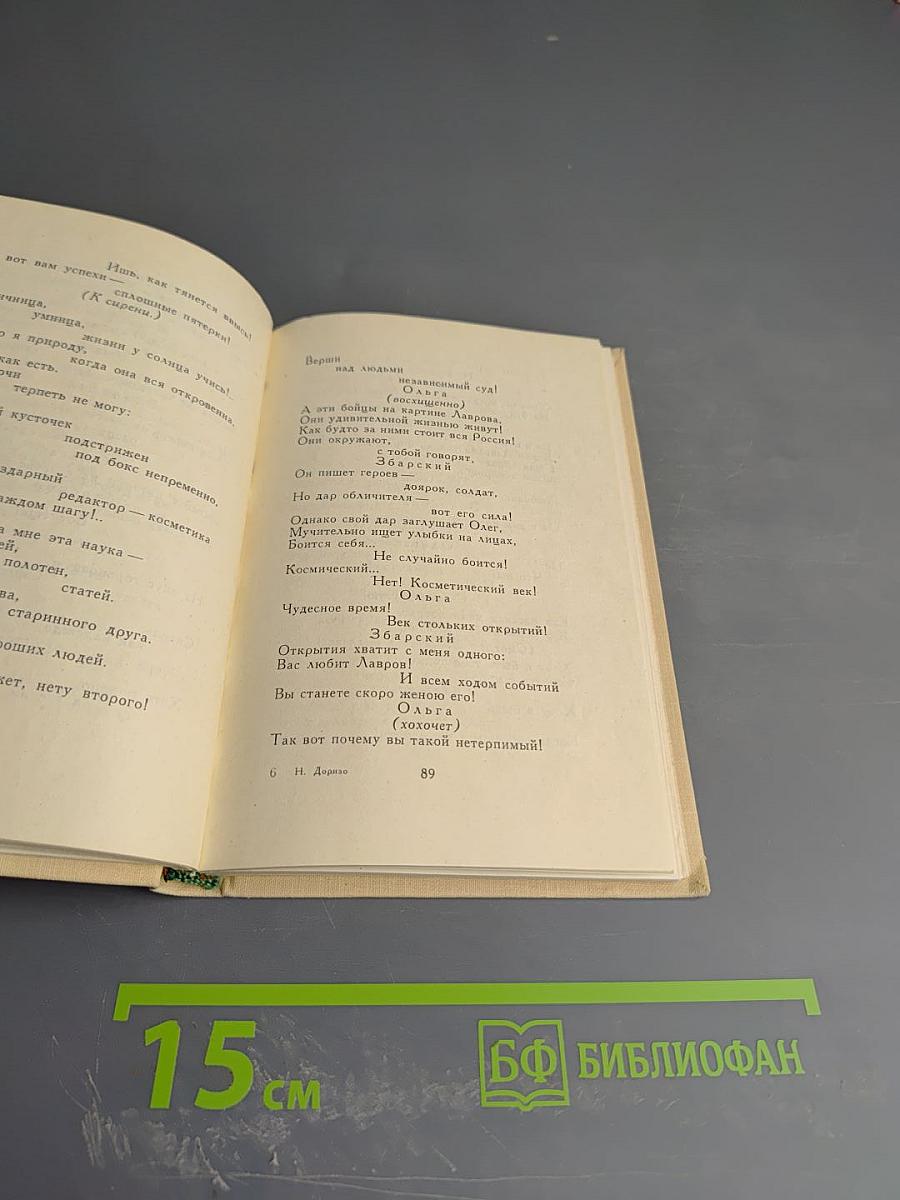 Ишь, как тянется ввысь!
вот вам успехи —
сплошные пятерки!
(К сирени.)
умница,
жизни у солнца учись!..
я природу,
когда она вся откровенна.
как есть.
терпеть не могу:
кусточек
подстрижен
под бокс непременно,
редактор — косметика
шагу!..
мне эта наука —
полотен,
статей.
старинного друга.
людей.
нету второго!
Верши
над людьми
независимый суд!
Ольга
(восхищенно)
А эти бойцы на картине Лаврова,
Они удивительной жизнью живут!
Как будто за ними стоит вся Россия!
Они окружают,
с тобой говорят,
Збарский
Он пишет героев —
доярок, солдат,
Но дар обличителя —
вот его сила!
Однако свой дар заглушает Олег,
Мучительно ищет улыбки на лицах,
Боится себя...
Не случайно боится!
Космический...
Нет! Косметический век!
Ольга
Чудесное время!
Век стольких открытий!
Збарский
Открытия хватит с меня одного:
Вас любит Лавров!
И всем ходом событий
Вы станете скоро женою его!
Ольга
(хохочет)
Так вот почему вы такой нетерпимый!
6 Н. Доризо 89
15 см
БФ БИБЛИОФАН